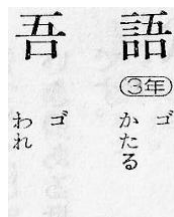 語
3年
ゴ
かたる
吾
ゴ
われ